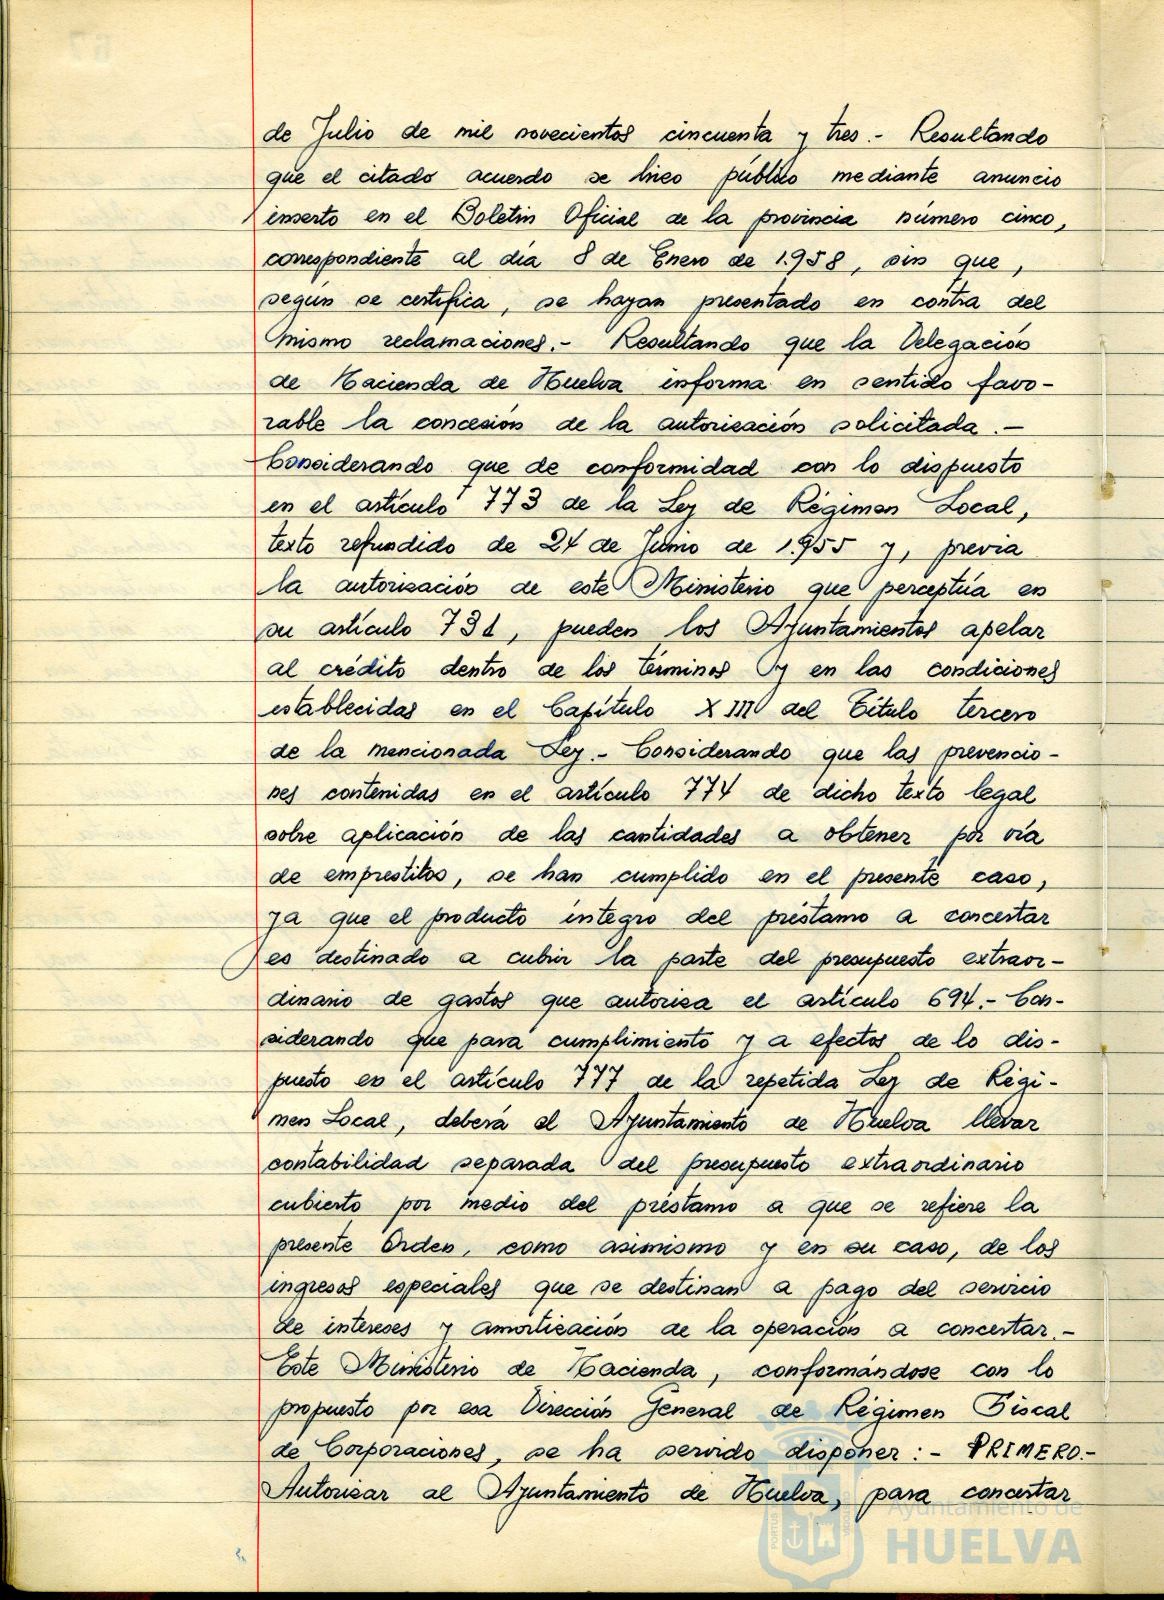 de Julio de mil novecientos cincuenta y tres.- Resultando
que el citado acuerdo se hizo público mediante anuncio
inserto en el Boletin Oficial de la provincia número cinco,
correspondiente al día 8 de Enero de 1.958, sin que,
según se certifica, se hayan presentado en contra del
mismo reclamaciones.- Resultando que la Delegación
de Hacienda de Huelva informa en sentido favo-
rable la concesión de la autorización solicitada.-
Considerando que de conformidad con lo dispuesto
en el artículo 773 de la Ley de Régimen Local,
texto refundido de 24 de Junio de 1.955 y, previa
la autorización de este Ministerio que perceptúa en
su artículo 731, pueden los Ayuntamientos apelar
al crédito dentro de los términos y en las condiciones
establecidas en el Capítulo XIII del Título tercero
de la mencionada Ley.- Considerando que las prevencio-
nes contenidas en el artículo 774 de dicho texto legal
sobre aplicación de las cantidades a obtener por vía
de emprestitos, se han cumplido en el presente caso,
ya que el producto íntegro del préstamo a concertar
es destinado a cubrir la parte del presupuesto extraor-
dinario de gastos que autoriza el artículo 694.- Con-
siderando que para cumplimiento y a efectos de lo dis-
puesto en el artículo 777 de la repetida Ley de Régi-
men Local, deberá el Ayuntamiento de Huelva llevar
contabilidad separada del presupuesto extraordinario
cubierto por medio del préstamo a que se refiere la
presente Orden, como asimismo y en su caso, de los
ingresos especiales que se destinan a pago del servicio
de intereses y amortización de la operación a concertar.-
Este Ministerio de Hacienda, conformándose con lo
propuesto por esa Dirección General de Régimen Fiscal
de Corporaciones, se ha servido disponer:- PRIMERO.-
Autorizar al Ayuntamiento de Huelva, para concertar
Ayuntamiento de
HUELVA